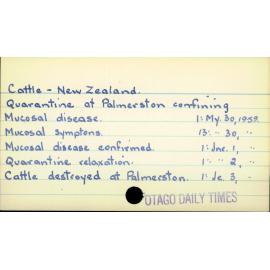 Cattle - New Zealand.
Quarantine at Palmerston confining
Mucosal disease. 1: My. 30, 1959.
Mucosal symptons. 13: " 30, "
Mucosal disease confirmed. 1: Jne. 1, "
Quarantine relaxation. 1: " 2, "
Cattle destroyed at Palmerston. 1: Je. 3, -
OTAGO DAILY TIMES